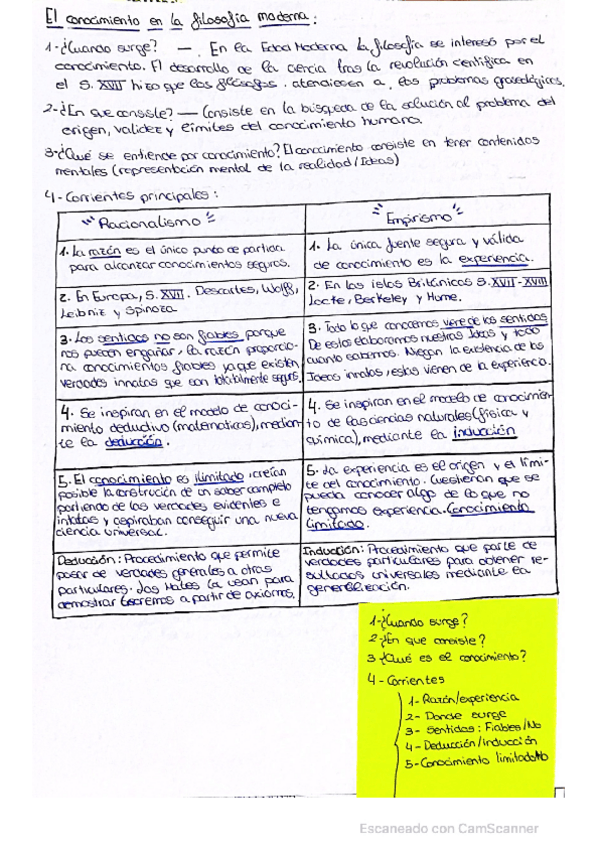 El conocimiento en la filosofía moderna:
1-¿Cuando surge? — En la Edad Moderna la filosofía se interesó por el
conocimiento. El desarrollo de la ciencia tras la revolución científica en
el S. XVII hizo que los filósofos atendiesen a los problemas
2-¿En que consiste? — Consiste en la búsqueda de la solución al problema del
origen, validez y límites del conocimiento humano.
3-¿Qué se entiende por conocimiento? El conocimiento consiste en tener contenidos
mentales (representación mental de la realidad/Ideas)
4-Corrientes principales:
Racionalismo
1. La razón es el único punto de partida
para alcanzar conocimientos seguros.
2. En Europa, S. XVII. Descartes, Wolff,
Leibniz y Spinoza
3. Los sentidos no son fiables porque
nos pueden engañar, la razón proporcio-
na conocimientos fiables ya que existen
verdades innatas que son totalmente seguras.
4. Se inspiran en el modelo de conoci-
miento deductivo (matemáticas), median-
te la deducción.
5. El conocimiento es ilimitado, creían
posible la construcción de un saber completo
partiendo de las verdades evidentes e
innatas y aspiraban conseguir una nueva
ciencia universal.
Deducción: Procedimiento que permite
pasar de verdades generales a otras
particulares. Las mates la usan para
demostrar teoremas a partir de axiomas.
Empirismo
1. La única fuente segura y válida
de conocimiento es la experiencia.
2. En las islas Británicas S. XVII-XVIII
Locke, Berkeley y Hume.
3. Todo lo que conocemos viene de los sentidos
De estos elaboramos nuestras Ideas y todo
cuanto sabemos. Niegan la existencia de las
Ideas innatas, estas vienen de la experiencia.
4. Se inspiran en el modelo de conocimien-
to de las ciencias naturales (física y
química), mediante la inducción
5. La experiencia es el origen y el lími-
te del conocimiento. Cuestionan que se
pueda conocer algo de lo que no
tengamos experiencia. Conocimiento
limitado.
Inducción: Procedimiento que parte de
verdades particulares para obtener re-
sultados universales mediante la
generalización.
1-¿Cuando surge?
2-¿En que consiste?
3 ¿Qué es el conocimiento?
4-Corrientes
1-Razón/experiencia
2-Donde surge
3-Sentidos: Fiables/No
4-Deducción/inducción
5-Conocimiento limitado/No
Escaneado con CamScanner